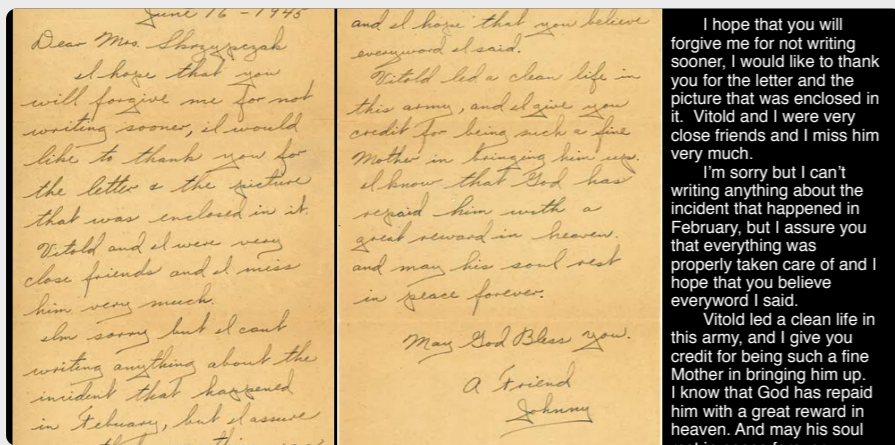 June 16 - 1945
Dear Mrs. Skrzypczak
I hope that you
will forgive me for not
writing sooner, I would
like to thank you for
the letter & the picture
that was enclosed in it.
Vitold and I were very
close friends and I miss
him very much.
Im sorry but I cant
writing anything about the
incident that happened
in February, but I assure
and I hope that you believe
everyword I said.
Vitold led a clean life in
this army, and I give you
credit for being such a fine
Mother in bringing him up.
I know that God has
repaid him with a
great reward in heaven.
and may his soul rest
in peace forever.
May God Bless you.
A Friend
Johnny
I hope that you will
forgive me for not writing
sooner, I would like to thank
you for the letter and the
picture that was enclosed in
it. Vitold and I were very
close friends and I miss him
very much.
I'm sorry but I can't
writing anything about the
incident that happened in
February, but I assure you
that everything was
properly taken care of and I
hope that you believe
everyword I said.
Vitold led a clean life in
this army, and I give you
credit for being such a fine
Mother in bringing him up.
I know that God has repaid
him with a great reward in
heaven. And may his soul